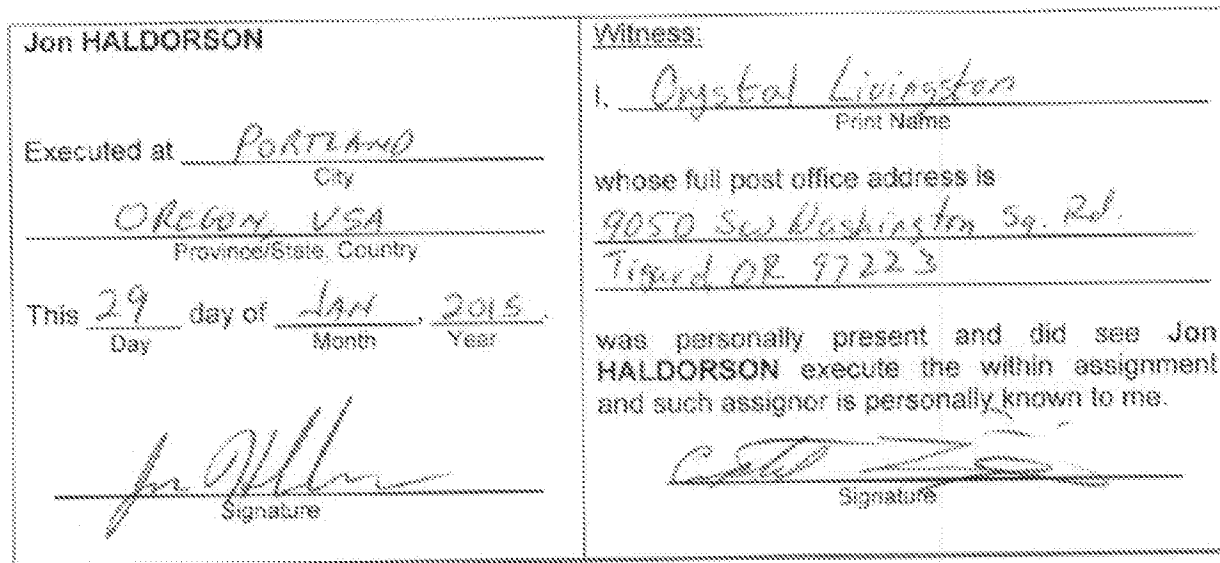 Jon HALDORSON
Executed at PORTLAND
City
OREGON, USA
Province/State, Country
This 29 day of JAN, 2015.
Day Month Year
Signature
Witness:
I, Crystal Livingston
Print Name
whose full post office address is
9050 SW Washington Sq. Rd.
Tigard OR 97223
was personally present and did see Jon
HALDORSON execute the within assignment
and such assignor is personally known to me.
Signature